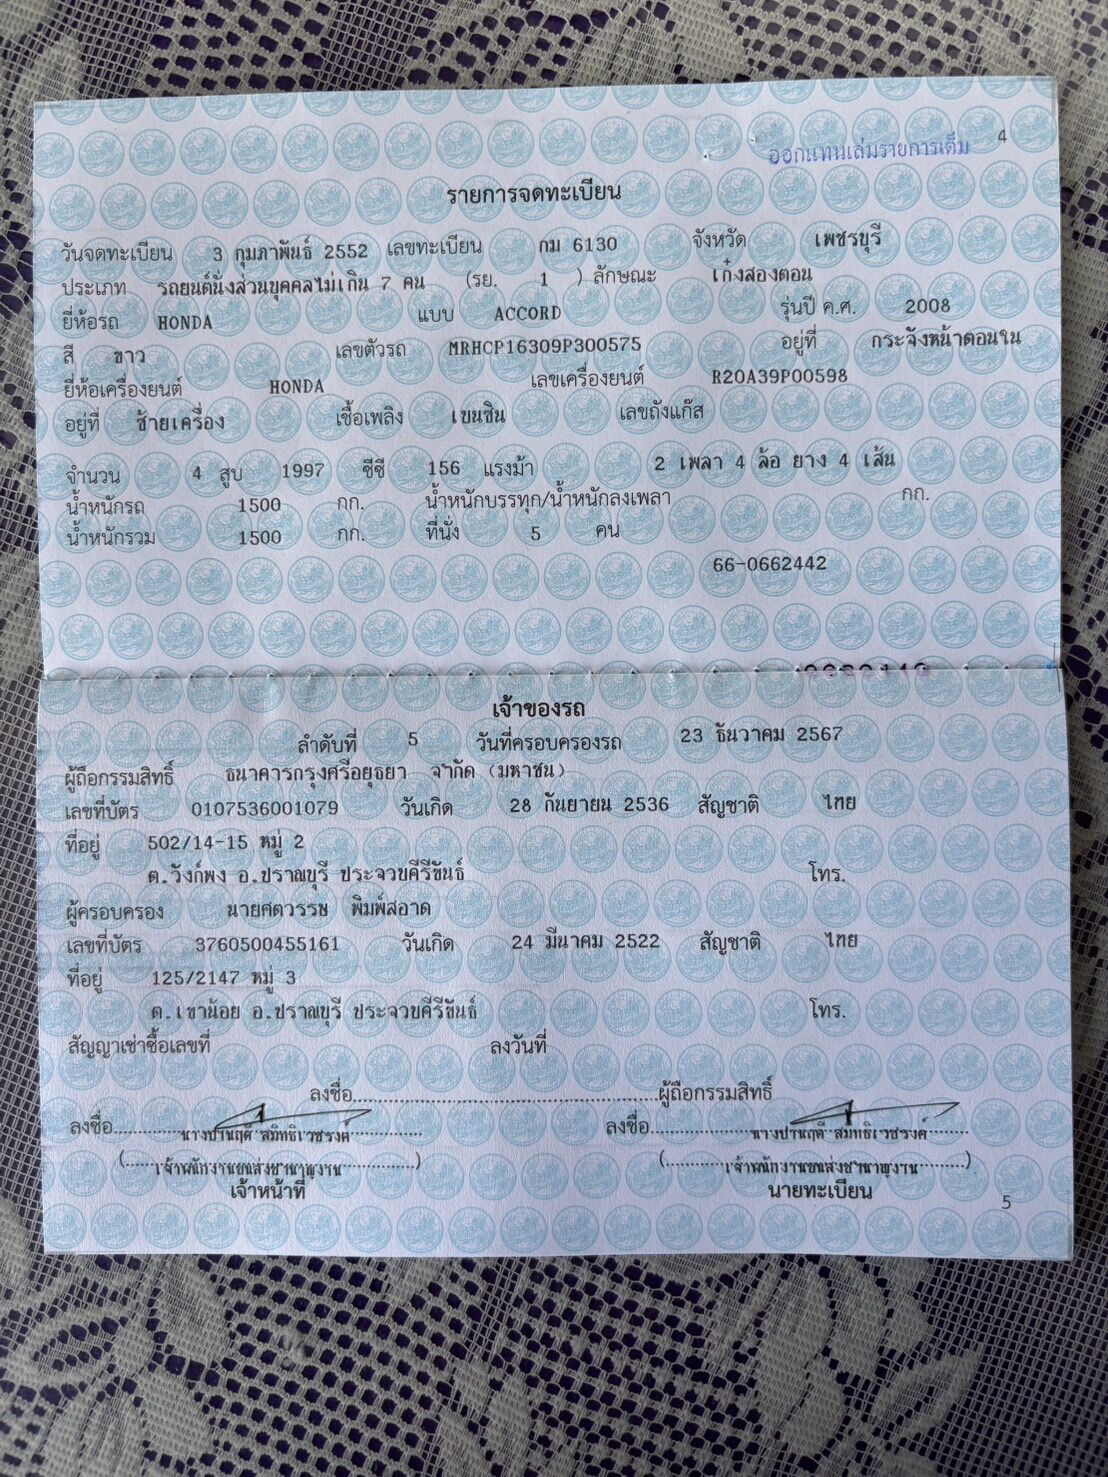 4
ออกแทนเล่มรายการเต็ม
รายการจดทะเบียน
วันจดทะเบียน 3 กุมภาพันธ์ 2552 เลขทะเบียน กม 6130 จังหวัด เพชรบุรี
ประเภท รถยนต์นั่งส่วนบุคคลไม่เกิน 7 คน (รย. 1 ) ลักษณะ เก๋งสองตอน
ยี่ห้อรถ HONDA แบบ ACCORD รุ่นปี ค.ศ. 2008
สี ขาว เลขตัวรถ MRHCP16309P300575 อยู่ที่ กระจังหน้าตอนใน
ยี่ห้อเครื่องยนต์ HONDA เลขเครื่องยนต์ R20A39P00598
อยู่ที่ ซ้ายเครื่อง เชื้อเพลิง เบนซิน เลขถังแก๊ส
จำนวน 4 สูบ 1997 ซีซี 156 แรงม้า 2 เพลา 4 ล้อ ยาง 4 เส้น
น้ำหนักรถ 1500 กก. น้ำหนักบรรทุก/น้ำหนักลงเพลา กก.
น้ำหนักรวม 1500 กก. ที่นั่ง 5 คน
66-0662442
เจ้าของรถ
ลำดับที่ 5 วันที่ครอบครองรถ 23 ธันวาคม 2567
ผู้ถือกรรมสิทธิ์ ธนาคารกรุงศรีอยุธยา จำกัด (มหาชน)
เลขที่บัตร 0107536001079 วันเกิด 28 กันยายน 2536 สัญชาติ ไทย
ที่อยู่ 502/14-15 หมู่ 2
ต.วังก์พง อ.ปราณบุรี ประจวบคีรีขันธ์ โทร.
ผู้ครอบครอง นายศตวรรษ พิมพ์สอาด
เลขที่บัตร 3760500455161 วันเกิด 24 มีนาคม 2522 สัญชาติ ไทย
ที่อยู่ 125/2147 หมู่ 3
ต.เขาน้อย อ.ปราณบุรี ประจวบคีรีขันธ์ โทร.
สัญญาเช่าซื้อเลขที่ ลงวันที่
ลงชื่อ........................................ผู้ถือกรรมสิทธิ์
ลงชื่อ นางปานฤดี สมิทธิเวชรงค์ ลงชื่อ นางปานฤดี สมิทธิเวชรงค์
(เจ้าพนักงานขนส่งชำนาญงาน) (เจ้าพนักงานขนส่งชำนาญงาน)
เจ้าหน้าที่ นายทะเบียน
5